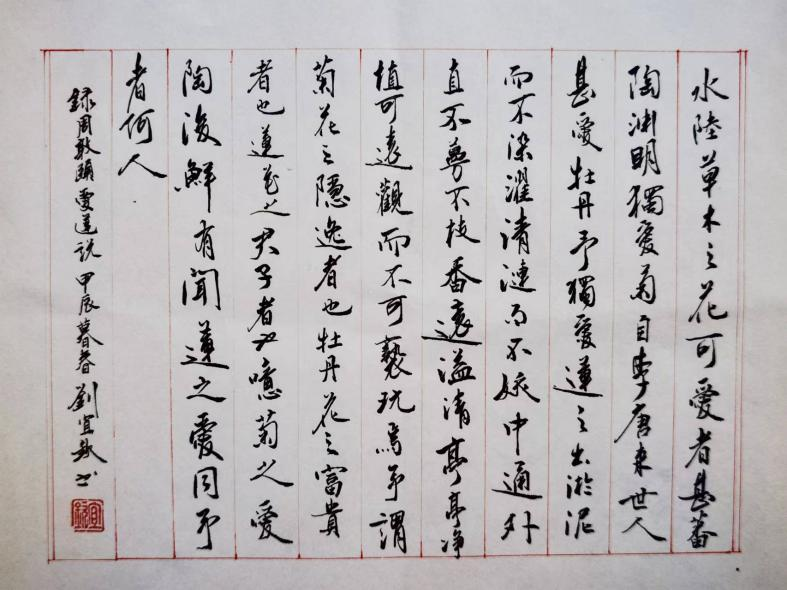 水陸草木之花可愛者甚蕃
陶渊明獨愛菊自李唐来世人
甚愛牡丹予獨愛蓮之出淤泥
而不染濯清漣而不妖中通外
直不蔓不枝香遠溢清亭亭净
植可遠觀而不可褻玩焉予謂
菊花之隱逸者也牡丹花之富貴
者也蓮花之君子者也噫菊之愛
陶後鮮有聞蓮之愛同予
者何人
録周敦頤愛蓮説甲辰暮春劉宜书